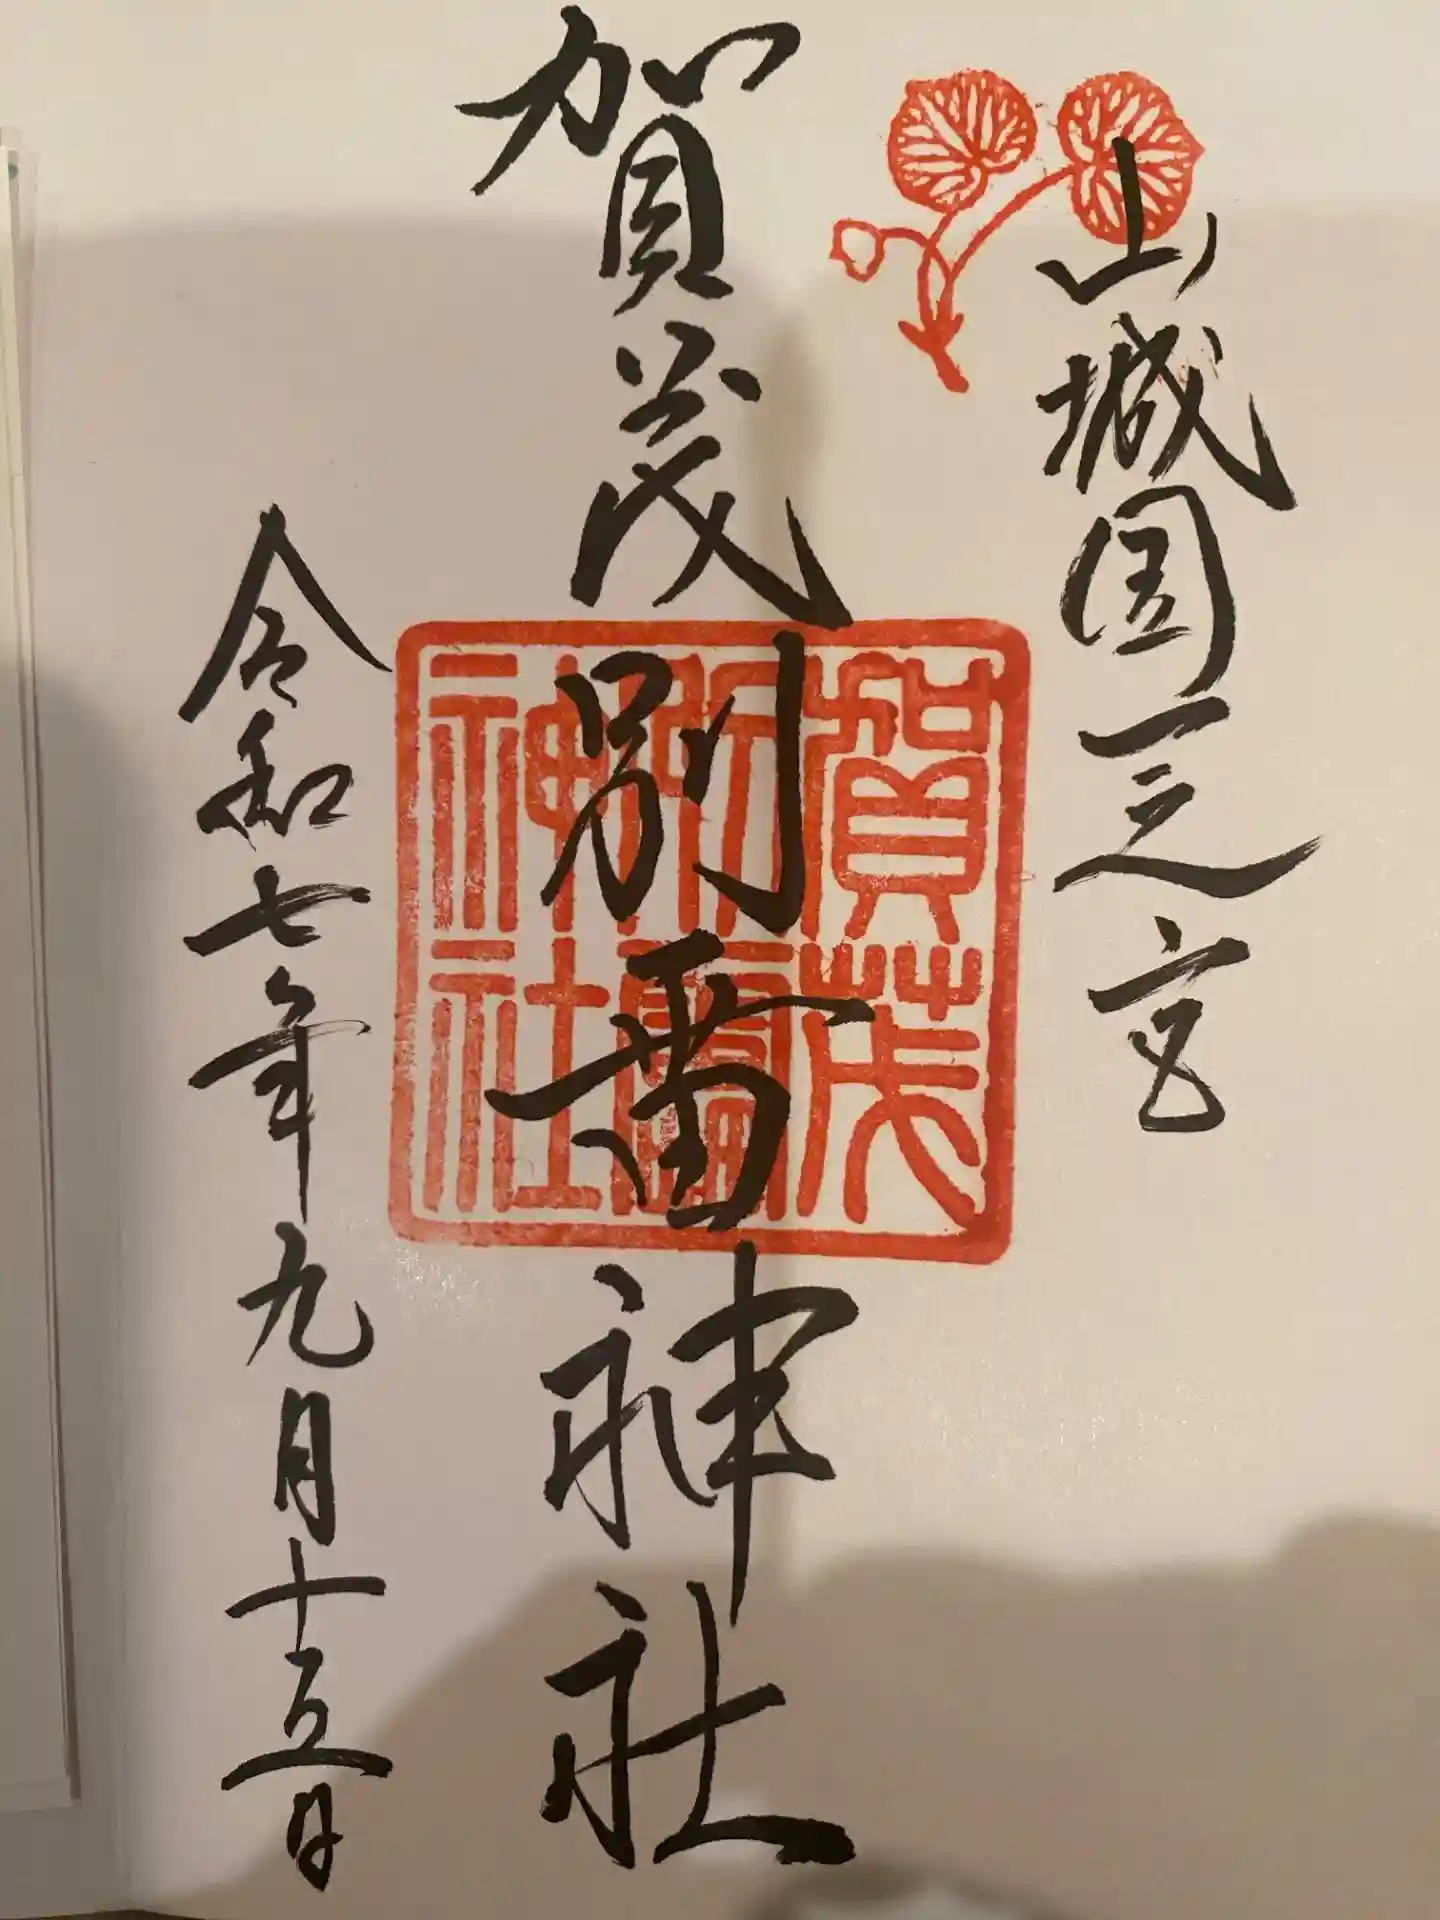 山城国一之宮
賀茂別雷神社
賀茂
別雷
神社
令和七年九月十五日